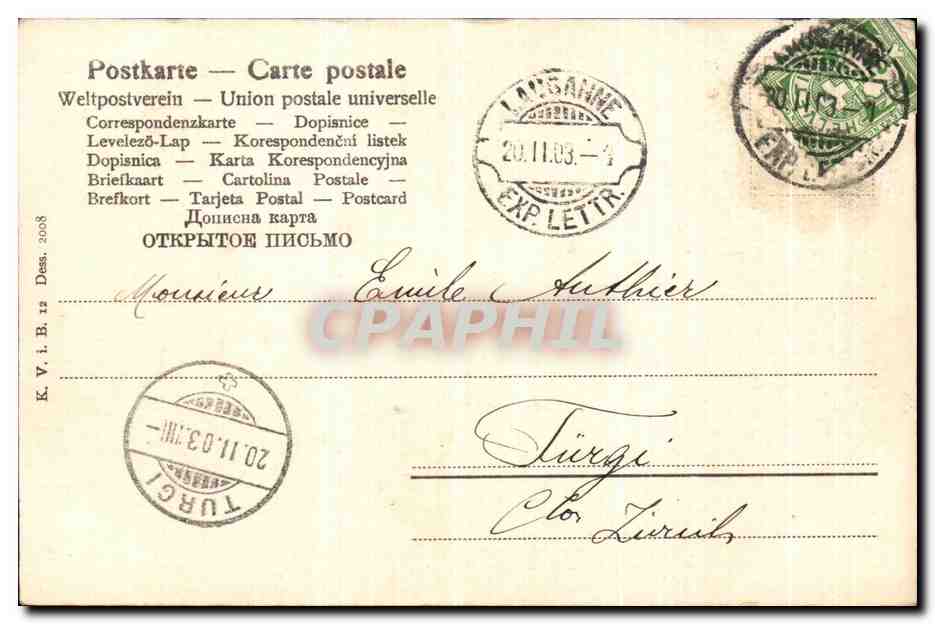 Postkarte — Carte postale
Weltpostverein — Union postale universelle
Correspondenzkarte — Dopisnice —
Levelező-Lap — Korespondenční listek
Dopisnica — Karta Korespondencyjna
Briefkaart — Cartolina Postale —
Brefkort — Tarjeta Postal — Postcard
Дописна карта
ОТКРЫТОЕ ПИСЬМО
LAUSANNE
20.II.03.–4
EXP. LETTR.
LAUSANNE
20.II.03.–4
EXP. LETTR.
Monsieur Emile Authier
CPAPHIL
Türgi
Cton Zürich
TURGI
20.11.03.VIII–
K. V. i. B. 12 Dess. 2008